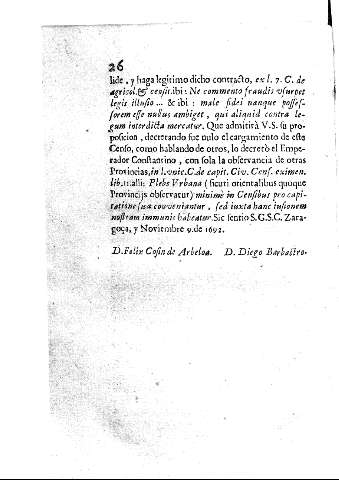 26
lide, y haga legitimo dicho contracto, ex l. 7. C. de
agricol. & censit. ibi: Ne commento fraudis vsurpet
legis illusio ... & ibi: male fidei nanque posses-
sorem esse nullus ambiget, qui aliquid contra le-
gum interdicta mercatur. Que admitirà V.S. su pro-
posicion, decretando fue nulo el cargamiento de este
Censo, como hablando de otros, lo decretò el Empe-
rador Constantino, con sola la observancia de otras
Provincias, in l. vnic. C. de capit. Civ. Cens. eximen.
lib. 11. allì: Plebs Vrbana (sicuti orientalibus quoque
Provincijs observatur) minimè in Censibus pro capi-
tatione sua conveniantur, sed iuxta hanc iusionem
nostram immunis habeatur. Sic sentio S.G.S.C. Zara-
goça, y Noviembre 9. de 1692.
D. Felix Cosin de Arbeloa. D. Diego Barbastro.